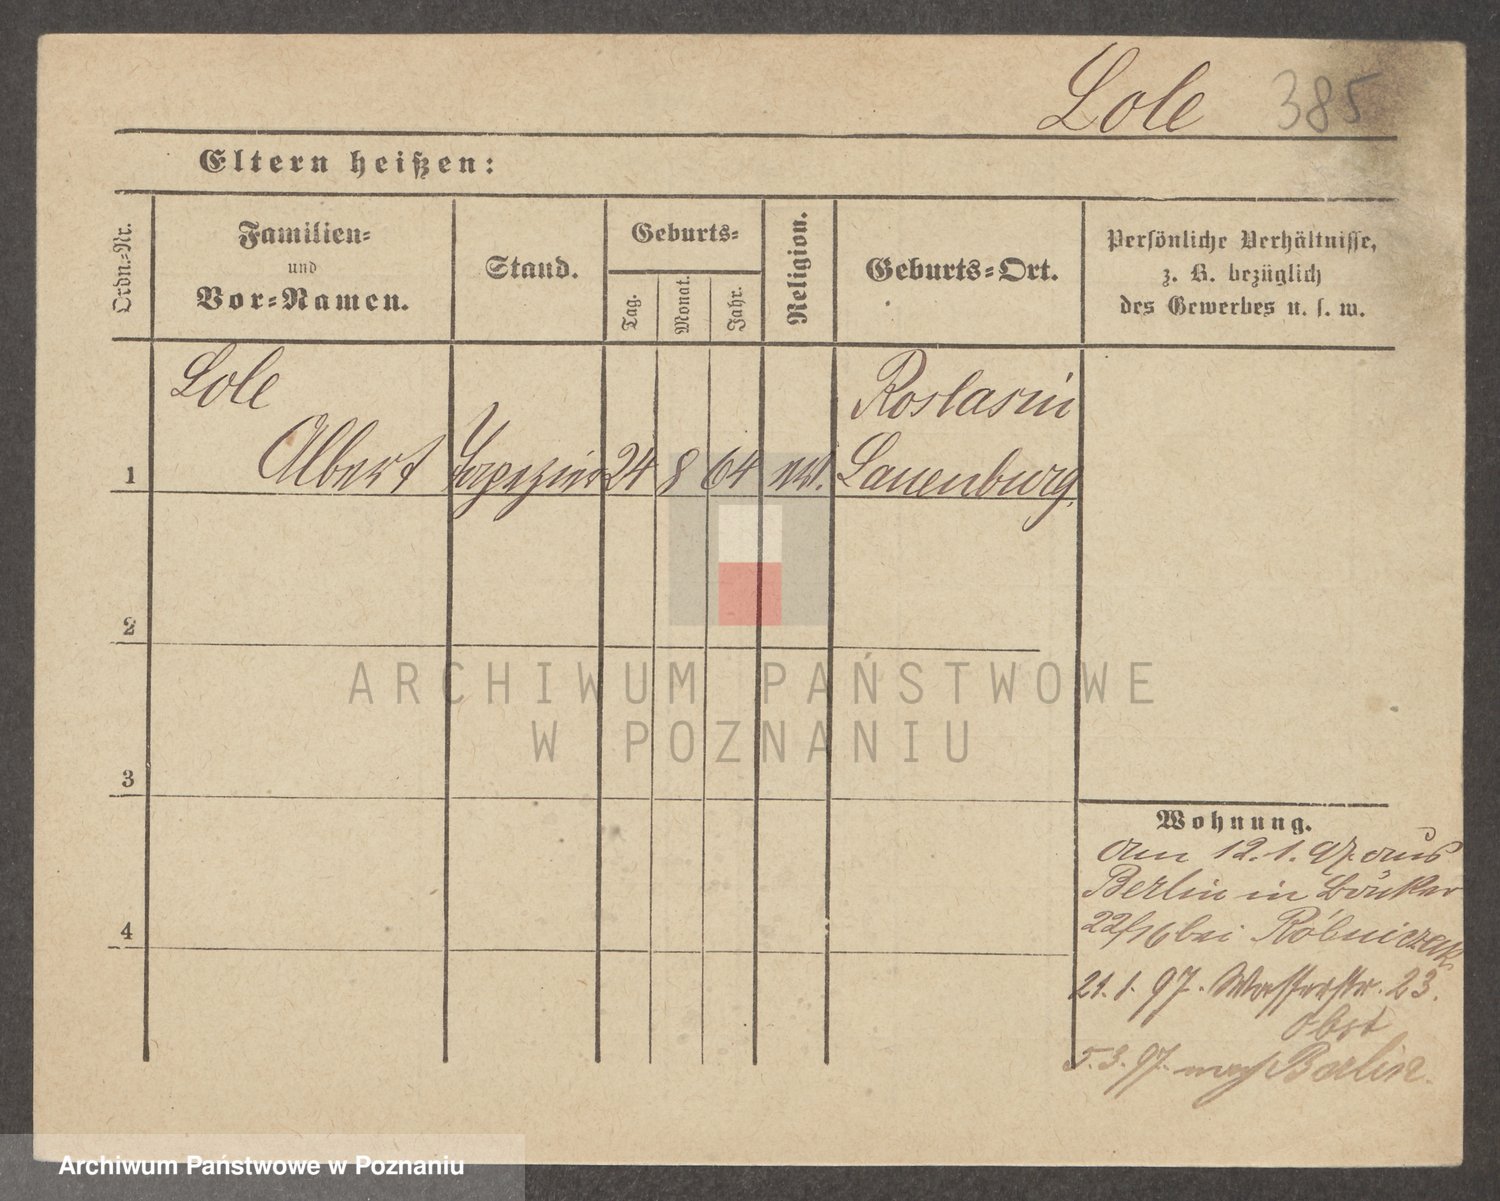 Lole 385
Eltern heißen:
Ordn.-Nr.
Familien-
und
Vor-Namen.
Stand.
Geburts-
Tag.
Monat.
Jahr.
Religion.
Geburts-Ort.
Persönliche Verhältnisse,
z. B. bezüglich
des Gewerbes u. s. w.
Lole
Albert
Roslasin
1
Tapezier
24
8
64
Lauenburg
2
3
4
Wohnung.
am 12.1.97. aus
Berlin in Bäcker
22/16 bei Rólniczak
21.1.97. Wasserstr. 23.
5.3.97. nach Berlin.
ARCHIWUM PAŃSTWOWE
W POZNANIU
Archiwum Państwowe w Poznaniu